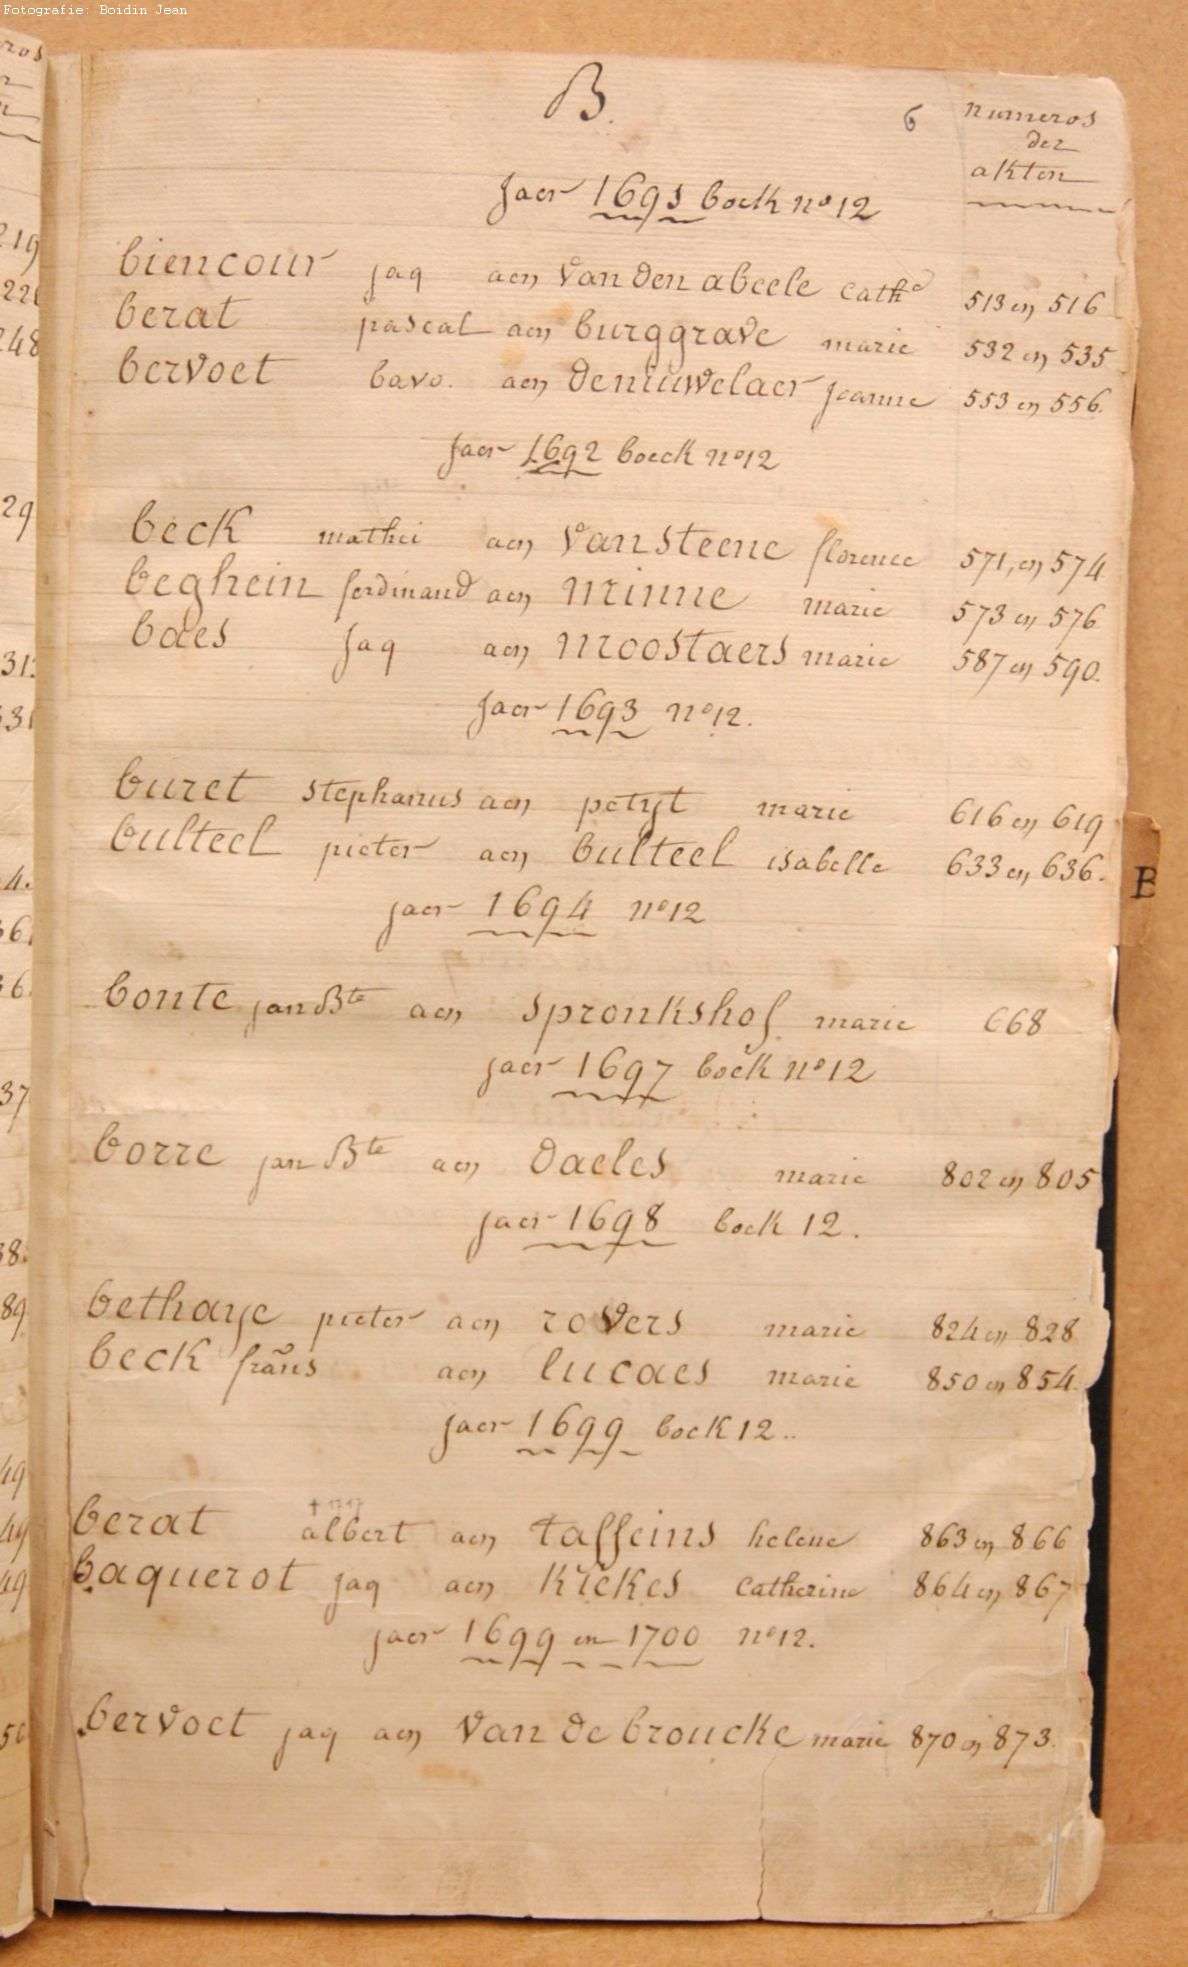 Fotografie: Boidin Jean
B.
6
numeros
der
akten
Jaer 1691 boek nº 12
biencour jaq aen Van den abeele cathe 513 en 516
berat pascal aen burggrave marie 532 en 535
bervoet bavo. aen deniuwelaer jeanne 553 en 556.
Jaer 1692 boeck nº 12
beck mathei aen Van steene florence 571, en 574
beghein ferdinand aen minne marie 573 en 576
baes Jaq aen moostaers marie 587 en 590.
Jaer 1693 nº 12.
buret stephanus aen petyt marie 616 en 619
bulteel pieter aen bulteel isabelle 633 en 636.
jaer 1694 nº 12
bonte jan Bte aen spronkshof marie 668
jaer 1697 boek nº 12
B
borre jan Bte aen daeles marie 802 en 805
jaer 1698 boek 12.
bethaye pieter aen rovers marie 824 en 828
beck frañs aen lucaes marie 850 en 854.
jaer 1699 boek 12..
† 1717
berat albert aen taffeins helene 863 en 866
baquerot jaq aen kiekes catherine 864 en 867
jaer 1699 en 1700 nº 12.
bervoet jaq aen Van de broucke marie 870 en 873.